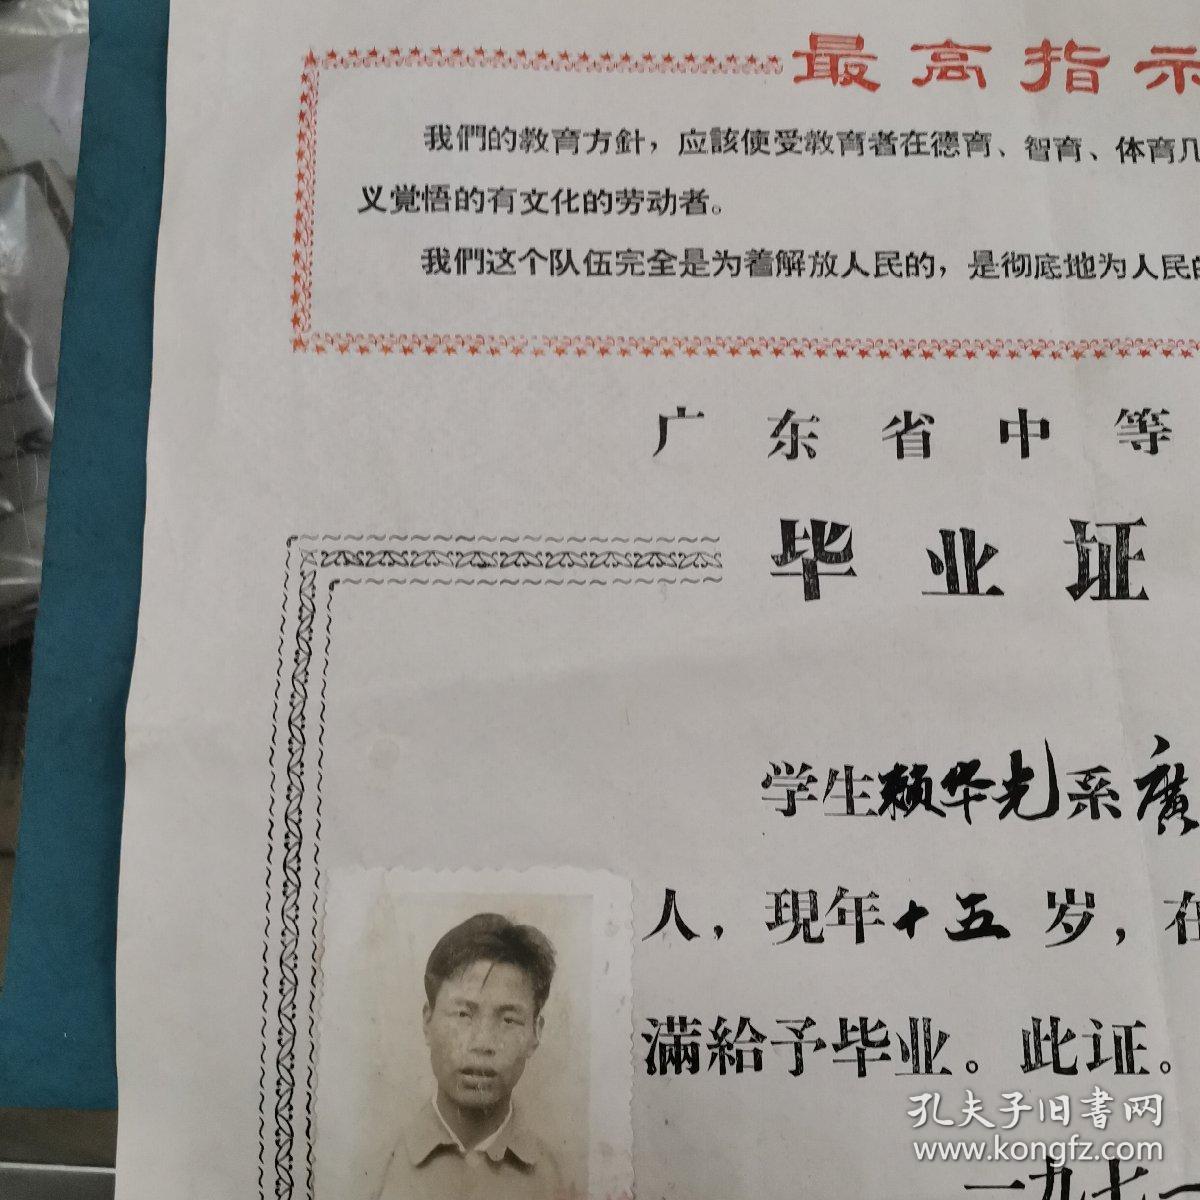 最高指示
我們的教育方針，应該使受教育者在德育、智育、体育几
义覚悟的有文化的劳动者。
我們这个队伍完全是为着解放人民的，是彻底地为人民的
广东省中等
毕业证
学生賴华光系廣
人，現年十五岁，在
滿給予毕业。此证。
一九七一
孔夫子旧書网
www.kongfz.com